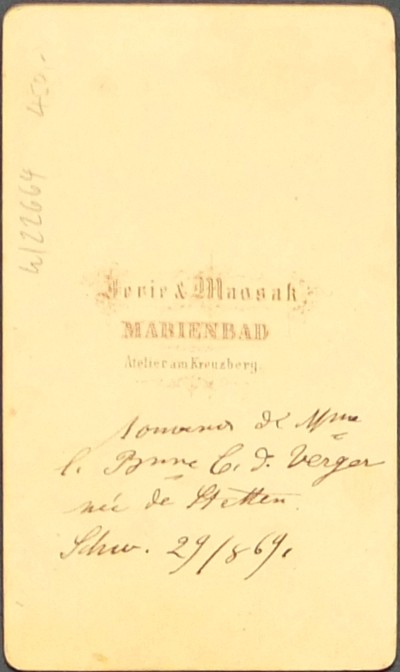 W/22664 450,-
Jerie & Maosak
MARIENBAD
Atelier am Kreuzberg.
souvenir de Mme
l. Bnne C. d. Verger
née de Stetten.
Schw. 29/8 69.